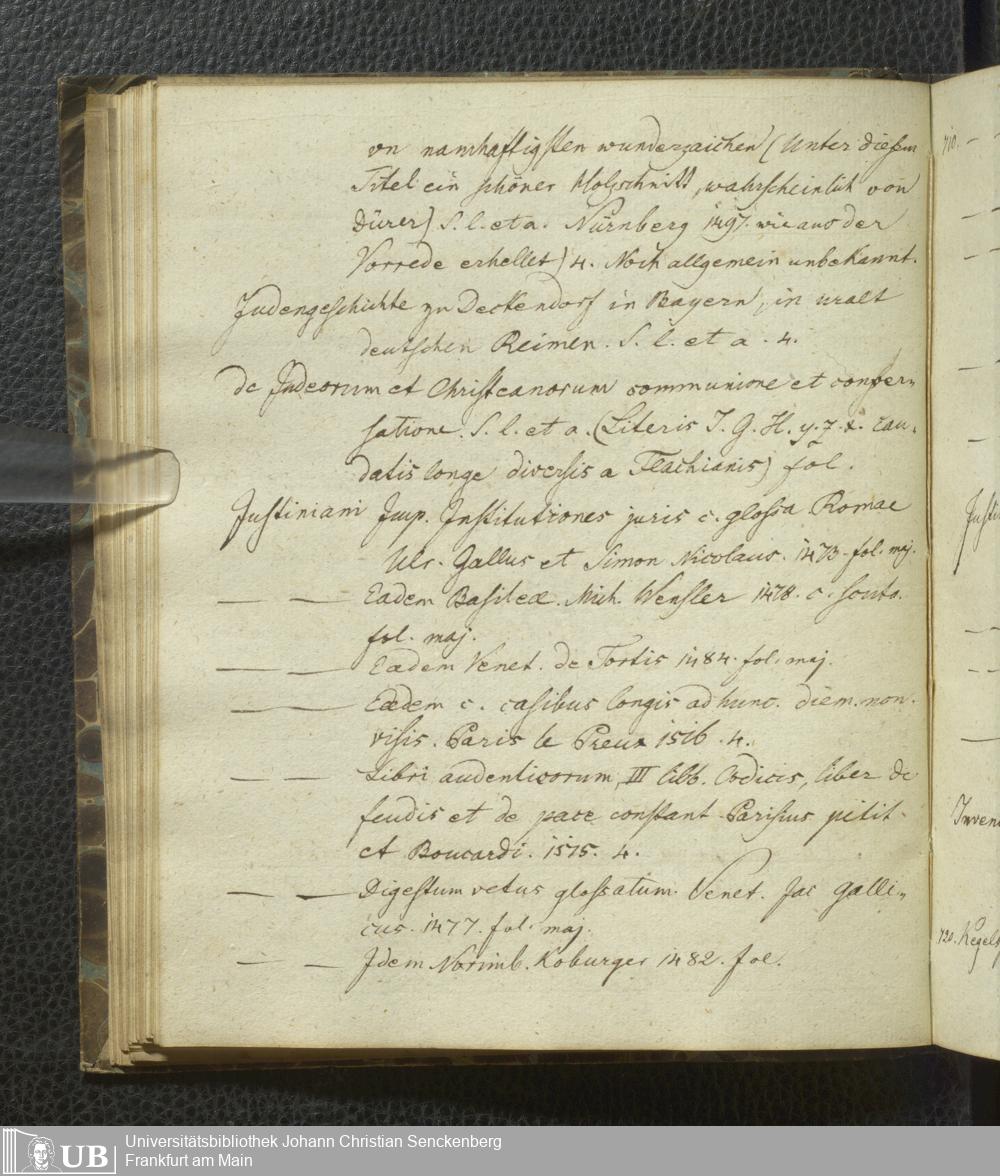 vn namhaftigsten wunderzaichen (Unter diesem
Titel ein schöner Holzschnitt, wahrscheinlich von
Dürer) S. l. et a. Nürnberg 1497. wie aus der
Vorrede erhellet) 4. Noch allgemein unbekannt.
Judengeschichte zu Deckendorf in Bayern, in uralt
deutschen Reimen. S. l. et a. 4.
de Judeorum et Christeanorum communione et conver„
satione. S. l. et a. (Literis I. G. H. y. z. x. cau„
datis longe diversis a Flachianis) fol.
Justiniani Imp. Institutiones juris c. glossa Romae
Ulr. Gallus et Simon Nicolaus. 1473. fol. maj.
— — Eadem Basileæ. Mich. Wensler 1478. c. scuto.
fol. maj.
— — Eædem Venet. de Tortis 1484. fol. maj.
— — Eædem c. casibus longis ad hunc. diem. non.
visis. Paris le Preux 1516. 4.
— — Libri audenticorum, III libb. Codicis, liber de
feudis et de pace constant. Parisius petit.
et Boucardi. 1515. 4.
— — Digestum vetus glossatum. Venet. Jac Galli„
cus. 1477. fol. maj.
— — Idem Norimb. Koburger 1482. fol.
710. —
Justin
Inven
720. Kegels
UB
Universitätsbibliothek Johann Christian Senckenberg
Frankfurt am Main